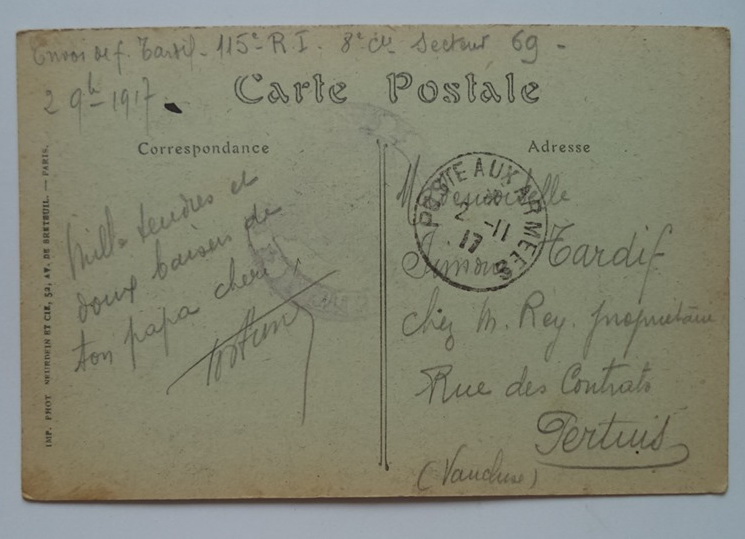 Envoi de f. Tardif - 115e R.I. 8e Cie Secteur 69 -
2 9b - 1917
Carte Postale
Correspondance
Adresse
Mille tendres et
doux baisers de
ton papa chéri
Mademoiselle
Simone Tardif
chez M. Rey. propriétaire
Rue des Contrats
Pertuis
(Vaucluse)
POSTE AUX ARMEES
2 -11
17
IMP. PHOT. NEURDEIN ET CIE, 52, AV. DE BRETEUIL. — PARIS.